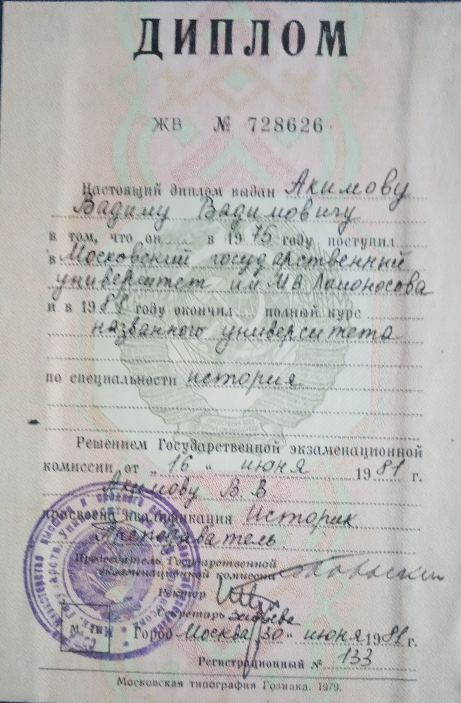 ДИПЛОМ
ЖВ № 728626
Настоящий диплом выдан Акимову
Вадиму Вадимовичу
в том, что он в 1975 году поступил
в Московский государственный
университет им МВ Ломоносова
и в 1981 году окончил полный курс
названного университета
по специальности история
Решением Государственной экзаменационной
комиссии от „16“ июня 1981 г.
Акимову В. В
присвоена квалификация Историк
Преподаватель
Председатель Государственной
экзаменационной комиссии
Ректор
Секретарь
Город Москва „30“ июня 1981 г.
Регистрационный № 133
Московская типография Гознака. 1979.